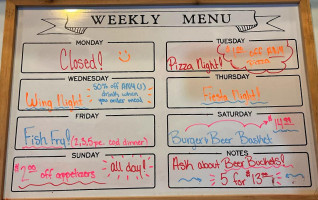 WEEKLY MENU
MONDAY
Closed!
TUESDAY
Pizza Night!
off ANY
pizza
WEDNESDAY
Wing Night
50% off ANY
drink when
you order
THURSDAY
Night!
FRIDAY
Fish Fry!
and dinner)
SATURDAY
Burger & Beer Basket
SUNDAY
off appetizers
all day!
NOTES
Ask about Beer Buckets!
5 for